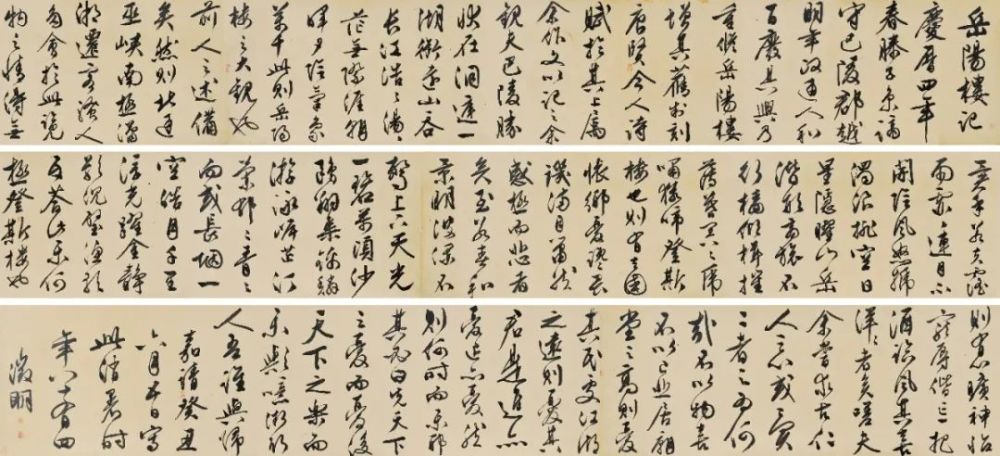 岳陽樓記
慶曆四年
春滕子京謫
守巴陵郡越
明年政通人和
百廢具興乃
重修岳陽樓
增其舊制刻
唐賢今人詩
賦於其上屬
余作文以記之余
觀夫巴陵勝
狀在洞庭一
湖銜遠山吞
長江浩々湯々
茫無際涯朝
暉夕陰氣象
萬千此則岳陽
樓之大觀也
前人之述備
矣然則北通
巫峽南極瀟
湘遷客騷人
多會於此覽
物之情得無
異乎若夫霪
雨霏々連月不
開陰風怒號
濁浪排空日
星隱曜山岳
潛形商旅不
行檣傾楫摧
薄暮冥々虎
嘯猿啼登斯
樓也則有去國
懷鄉憂讒畏
譏滿目蕭然
感極而悲者
矣至若春和
景明波瀾不
驚上下天光
一碧萬頃沙
鷗翔集錦鱗
游泳岸芷汀
蘭郁々青々
而或長烟一
空皓月千里
浮光躍金靜
影沉璧漁歌
互答此樂何
極登斯樓也
則有心曠神怡
寵辱偕忘把
酒臨風其喜
洋々者矣嗟夫
余嘗求古仁
人之心或異
二者之為何
哉不以物喜
不以己悲居廟
堂之高則憂
其民處江湖
之遠則憂其
君是進亦
憂退亦憂然
則何時而樂耶
其必曰先天下
之憂而憂後
天下之樂而
樂歟噫微斯
人吾誰與歸
嘉靖癸丑
六月五日寫
此消暑時
年八十有四
徵明